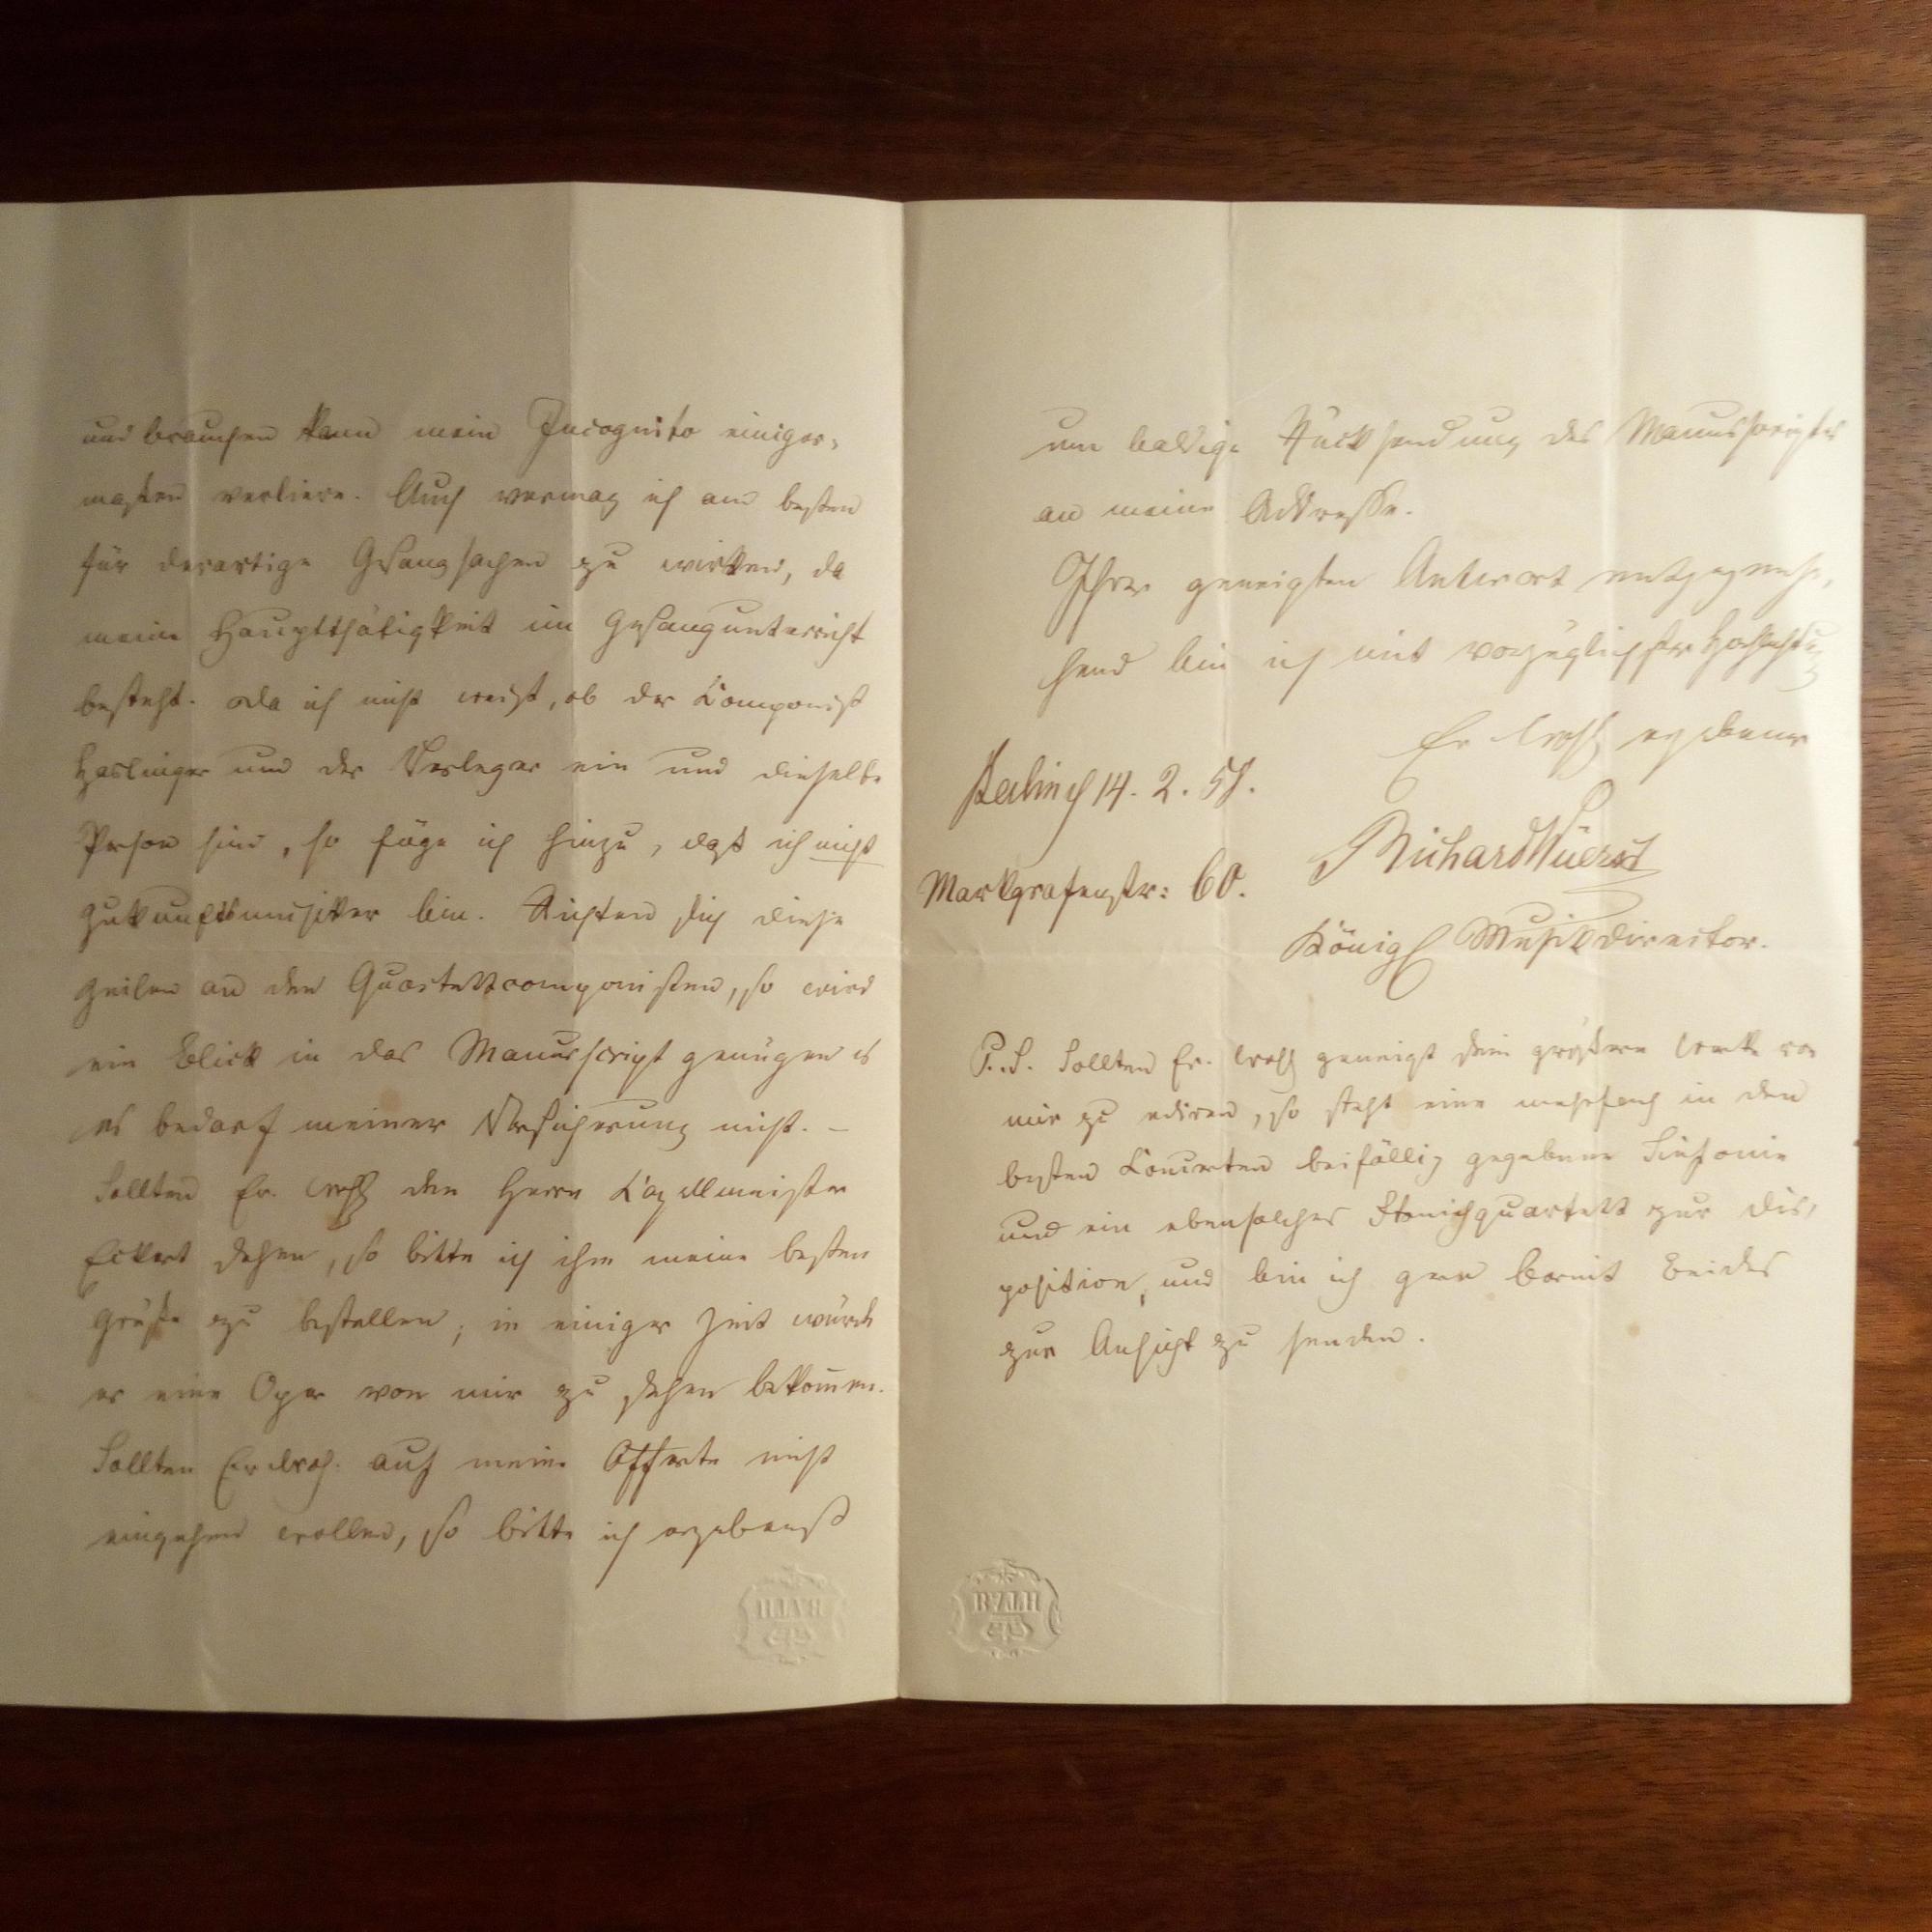 und brauchen kann mein Incognito einiger-
maßen verliere. Auch vermag ich am besten
für derartige Gesangsachen zu wirken, da
meine Hauptthätigkeit im Gesangunterricht
besteht. Da ich nicht weiß, ob der Componist
Haslinger und der Verleger ein und dieselbe
Person sind, so füge ich hinzu, daß ich nicht
Zukunftsmusiker bin. Richten sich diese
Zeilen an den Quartettcomponisten, so wird
ein Blick in das Manuscript genügen es
es bedarf meiner Versicherung nicht. –
Sollten Ew. Wohl den Herrn Capellmeister
Eckert sehen, so bitte ich ihm meine besten
Grüße zu bestellen; in einiger Zeit würde
er eine Oper von mir zu sehen bekommen.
Sollten Ew. auf meine Offerte nicht
eingehen wollen, so bitte ich ergebenst
um baldige Rücksendung des Manuscriptes
an meine Addresse.
Ihrer geneigten Antwort entgegense-
hend bin ich mit vorzüglichster Hochachtung
Ew Wohl ergebener
Berlin d 14. 2. 58.
Richard Wüerst
Markgrafenstr: 60.
Königl Musikdirector.
P.S. Sollten Ew. Wohl geneigt sein größere Werke von
mir zu ediren, so steht eine mehrfach in den
besten Concerten beifällig gegebene Sinfonie
und ein ebensolches Streichquartett zur Dis-
position, und bin ich gern bereit Beides
zur Ansicht zu senden.
BATH
BATH